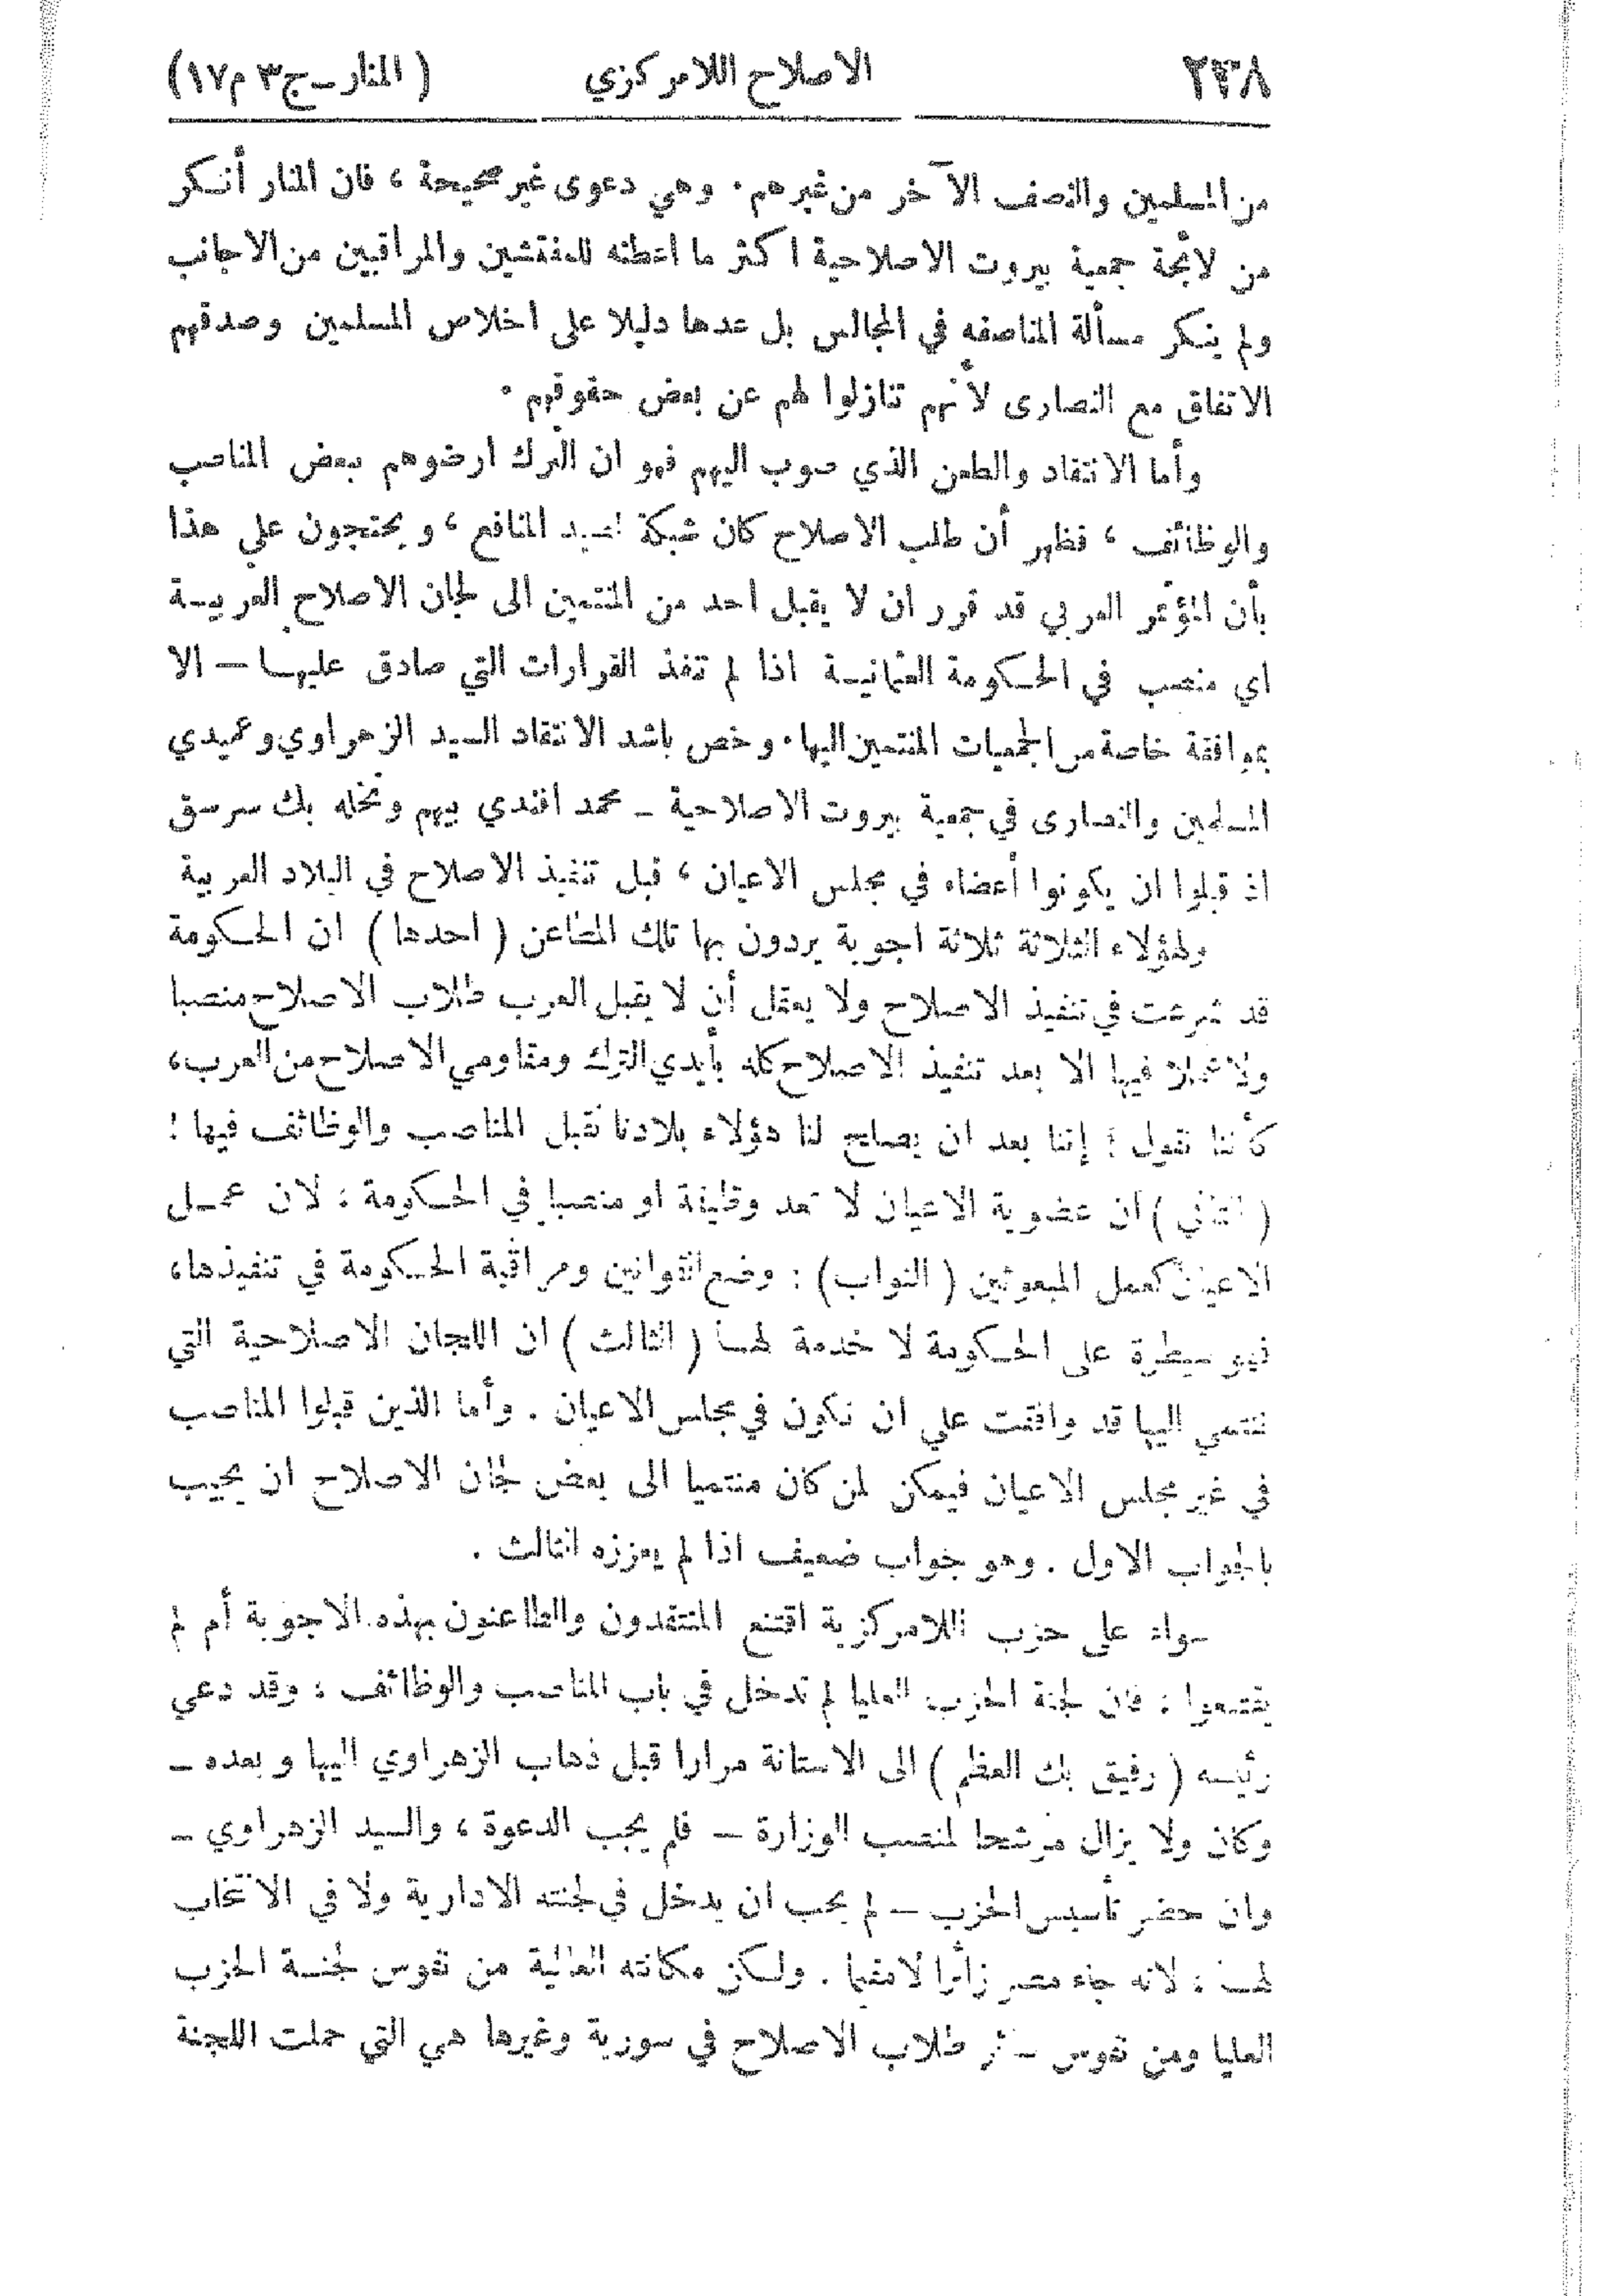 ٢٣٨ الاصلاح اللامركزي (المنار ـ ج ٣ م ١٧)
من المسلمين والنصف الآخر من غيرهم . وهي دعوى غير صحيحة ، فان المنار أنكر
من لائحة جمعية بيروت الاصلاحية اكثر ما اعطته للمفتشين والمراقبين من الاجانب
ولم ينكر مسألة المناصفه في المجالس بل عدها دليلا على اخلاص المسلمين وصدقهم
الاتفاق مع النصارى لأنهم تنازلوا لهم عن بعض حقوقهم .
وأما الانتقاد والطعن الذي صوب اليهم فهو ان الترك ارضوهم ببعض المناصب
والوظائف ، فظهر أن طلب الاصلاح كان شبكة لصيد المنافع ، ويحتجون على هذا
بأن المؤتمر العربي قد قرر ان لا يقبل احد من المنتمين الى لجان الاصلاح العربية
اي منصب في الحكومة العثمانية اذا لم تنفذ القرارات التي صادق عليها — الا
بموافقة خاصة من الجمعيات المنتمين اليها . وخص باشد الانتقاد السيد الزهراوي وعميدي
المسلمين والنصارى في جمعية بيروت الاصلاحية ـ محمد افندي بيهم ونخله بك سرسق
اذ قبلوا ان يكونوا أعضاء في مجلس الاعيان ، قبل تنفيذ الاصلاح في البلاد العربية
ولهؤلاء الثلاثة ثلاثة اجوبة يردون بها تلك المطاعن ( احدها ) ان الحكومة
قد شرعت في تنفيذ الاصلاح ولا يعقل أن لا يقبل العرب طلاب الاصلاح منصبا
ولا عملا فيها الا بعد تنفيذ الاصلاح كله بأيدي الترك ومقاومي الاصلاح من العرب ،
كأننا نقول : إننا بعد ان يصلح لنا هؤلاء بلادنا نقبل المناصب والوظائف فيها !
( الثاني ) ان عضوية الاعيان لا تعد وظيفة او منصبا في الحكومة : لان عمل
الاعيان كعمل المبعوثين ( النواب ) : وضع القوانين ومراقبة الحكومة في تنفيذها ،
فهو سيطرة على الحكومة لا خدمة لها ( الثالث ) ان اللجان الاصلاحية التي
ننتمي اليها قد وافقت على ان نكون في مجلس الاعيان . وأما الذين قبلوا المناصب
في غير مجلس الاعيان فيمكن لمن كان منتميا الى بعض لجان الاصلاح ان يجيب
بالجواب الاول . وهو جواب ضعيف اذا لم يعززه الثالث .
سواء على حزب اللامركزية اقتنع المنتقدون والطاعنون بهذه الاجوبة أم لم
يقتنعوا : فان لجنة الحزب العليا لم تدخل في باب المناصب والوظائف : وقد دعي
رئيسه ( رفيق بك العظم ) الى الاستانة مرارا قبل ذهاب الزهراوي اليها وبعده ـ
وكان ولا يزال مرشحا لمنصب الوزارة — فلم يجب الدعوة ، والسيد الزهراوي ـ
وان حضر تأسيس الحزب — لم يحب ان يدخل في لجنته الادارية ولا في الانتخاب
لها : لانه جاء مصر زائرا لا مقيما . ولكن مكانته العالية من نفوس لجنة الحزب
العليا ومن نفوس طلاب الاصلاح في سورية وغيرها هي التي حملت اللجنة